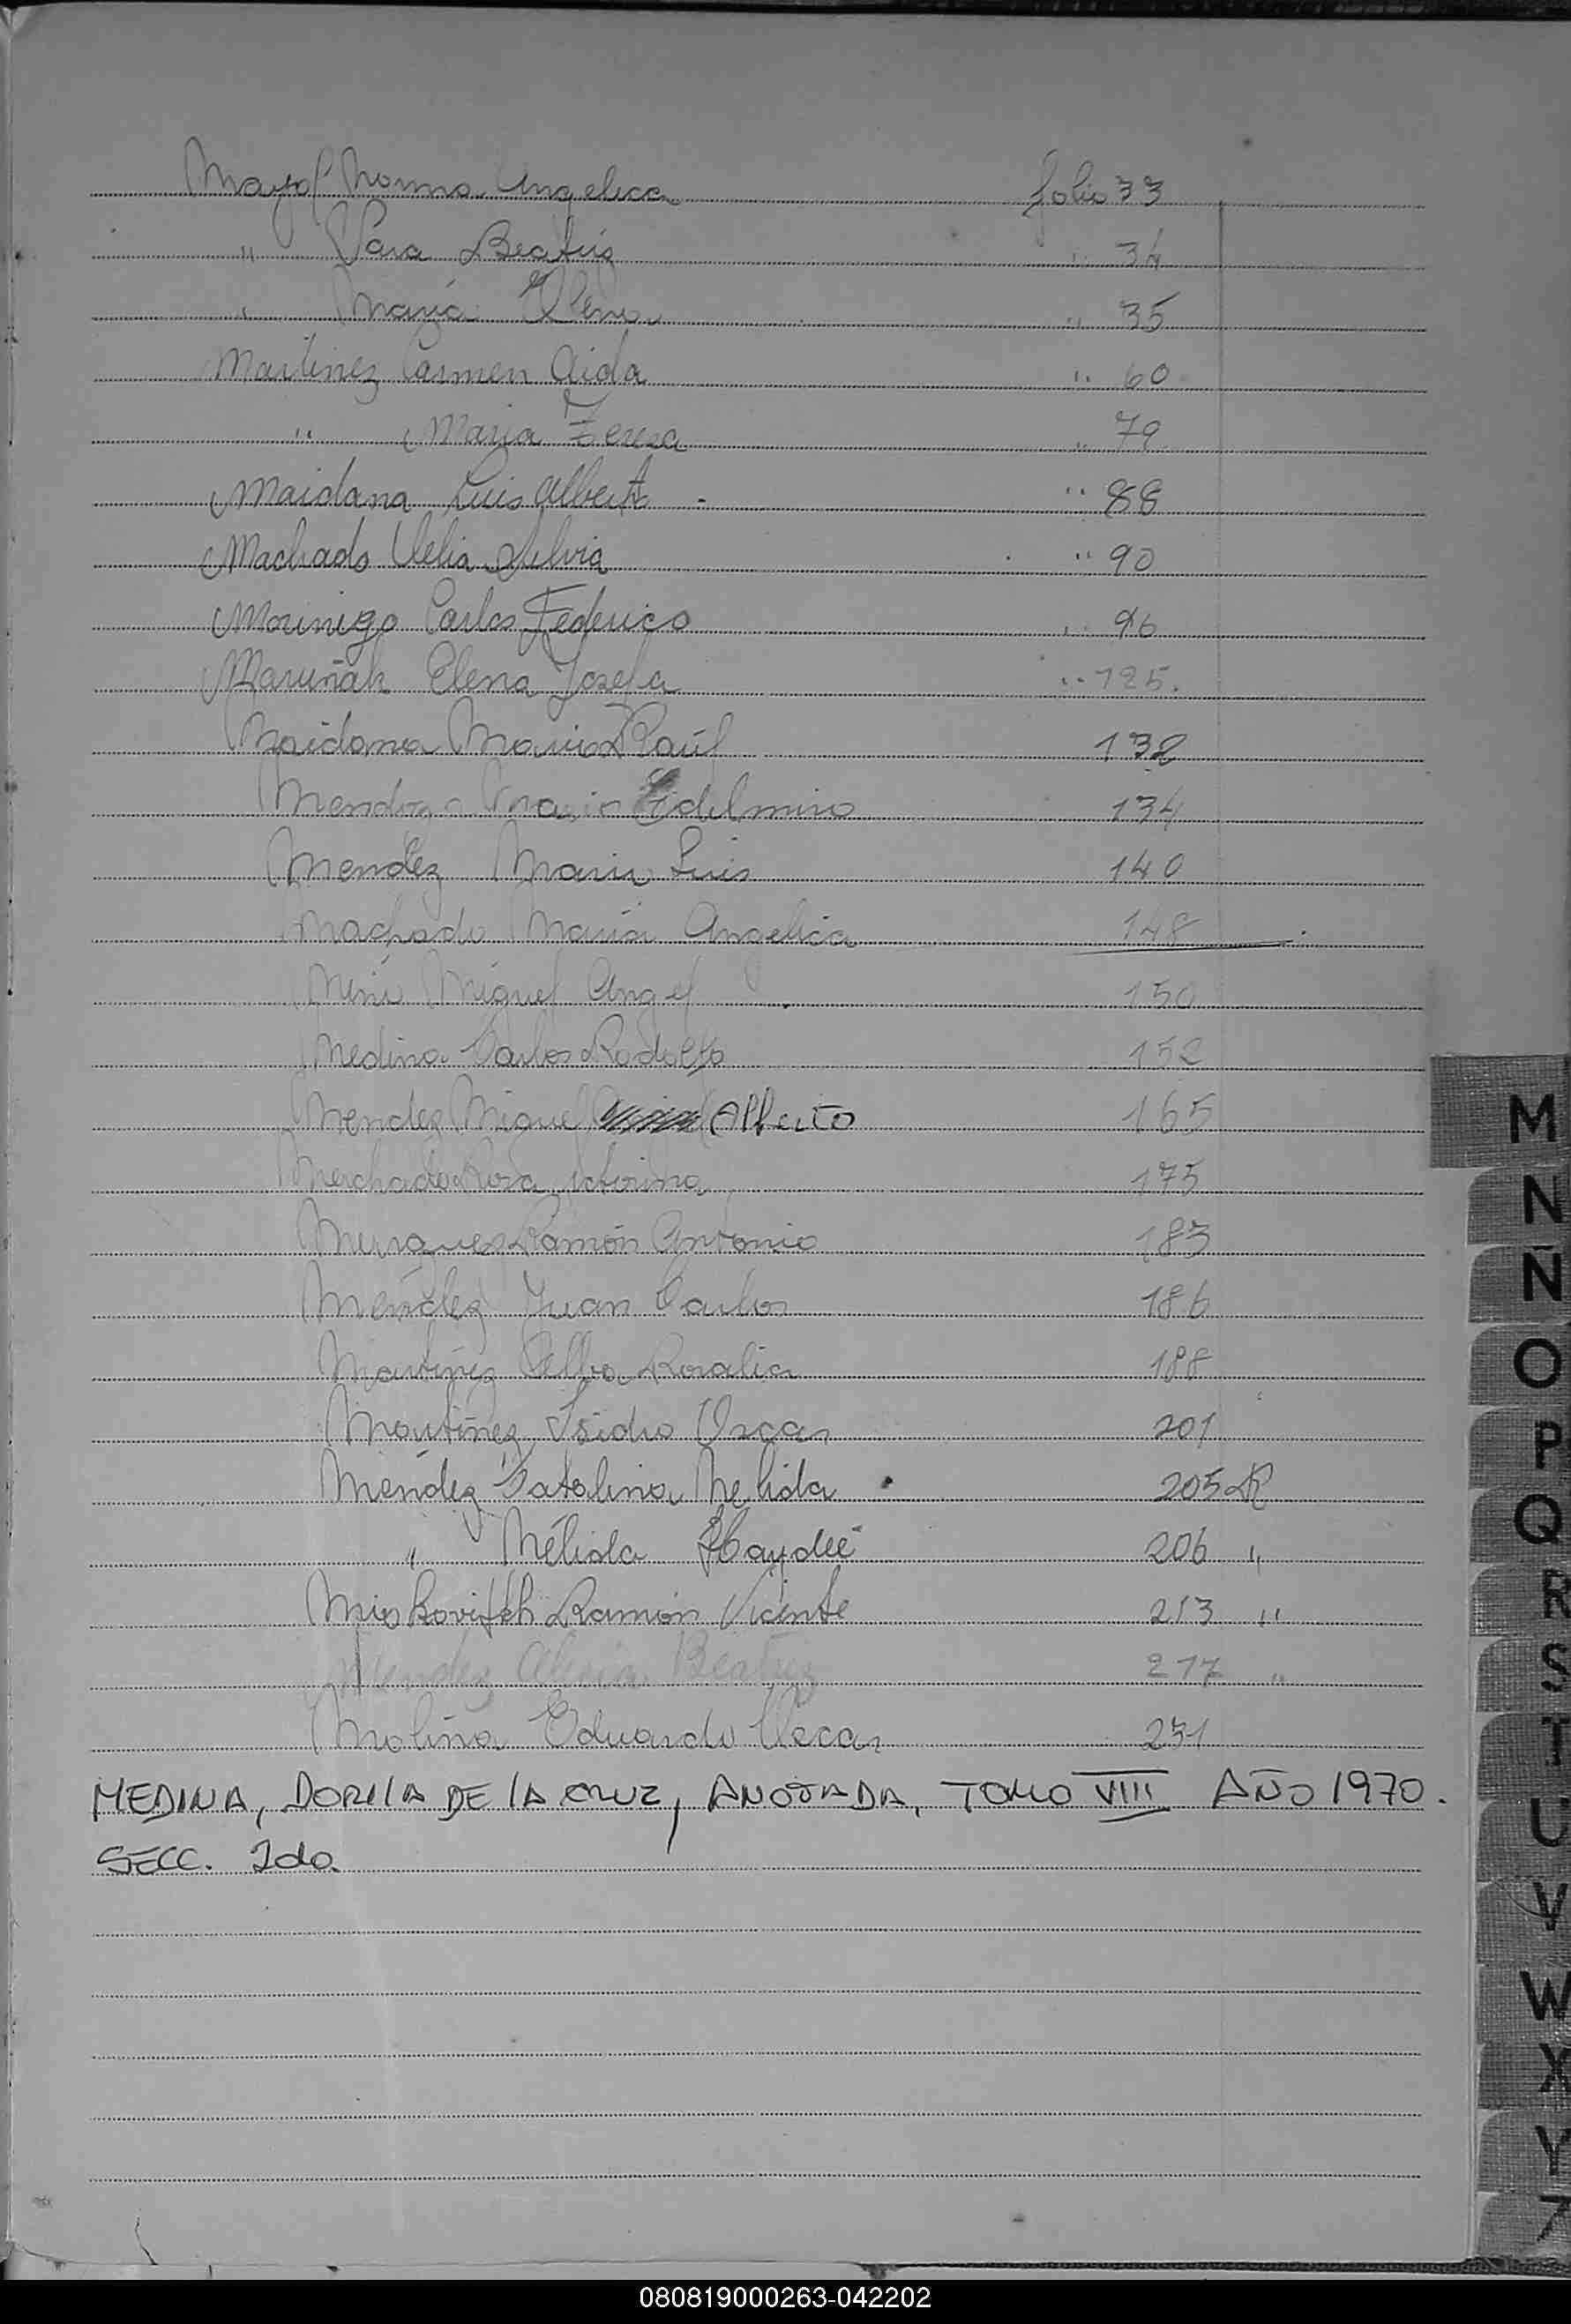 Mayol Norma Angelica folio 33
" Sara Beatriz " 34
" Maria Elena " 35
Martinez Carmen Aida " 60
" Maria Teresa " 79
Maidana Luis Alberto - " 88
Machado Clelia Silvia " 90
Morinigo Carlos Federico " 96
Maruñak Elena Josefa " 125.
Maidana Mario Raúl 132
Mendoza Mario Edelmiro 134
Mendez Mario Luis 140
Machado Maria Angelica 148
Miguel Angel 150
Medina Carlos Rodolfo 152
Mendez Miguel Alberto 165
Rosa 175
Ramón Antonio 183
Mendez Juan Carlos 186
Martinez Elba Rosalia 188
Martinez Isidro Oscar 201
Mendez Catalina Nelida 205 R
" Nélida Haydeé 206 "
Miskovitch Ramón Vicente 213 "
Mendez Alicia Beatriz 217 "
Molina Eduardo Oscar 231
MEDINA, DORILA DE LA CRUZ, ANOTADA, TOMO VIIII AÑO 1970.
SECC. 2da.
M
N
Ñ
O
P
Q
R
S
T
U
V
W
X
Y
Z
080819000263-042202